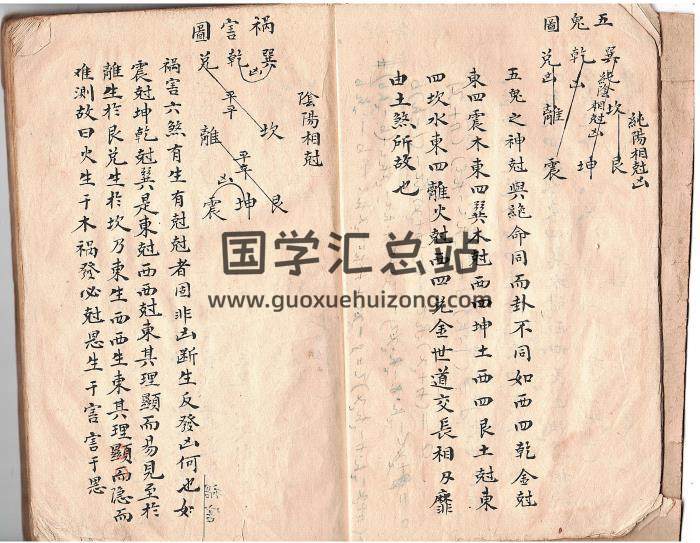 五鬼圖
巽 乾 兑
坎
純陰相尅凶
凶
凶
純陽相尅凶
艮 坤 離
震
五鬼之神尅與絶命同而卦不同如西四乾金尅
東四震木東四巽木尅西四坤土西四艮土尅東
四坎水東四離火尅西四兑金世道交長相刃靡
由土煞所故也
禍害圖
巽 乾 兑
凶
平平
坎 離
平平
凶
艮 坤 震
陰陽相尅
禍害六煞有生有尅尅者固非凶断生反發凶何也如
震尅坤乾尅巽是東尅西西尅東其理顯而易見至於
離生於艮兑生於坎乃東生西西生東其理顯而隐而
难測故曰火生于木禍發必尅恩生于害害于恩
国学汇总站
www.guoxuehuizong.com